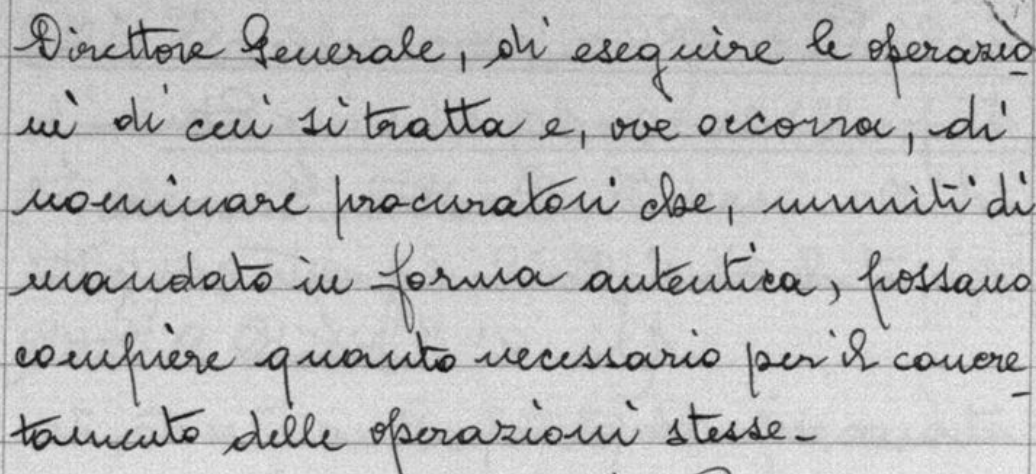 Direttore Generale, di eseguire le operazio
ni di cui si tratta e, ove occorra, di
nominare procuratori che, muniti di
mandato in forma autentica, possano
compiere quanto necessario per il concre
tamento delle operazioni stesse.